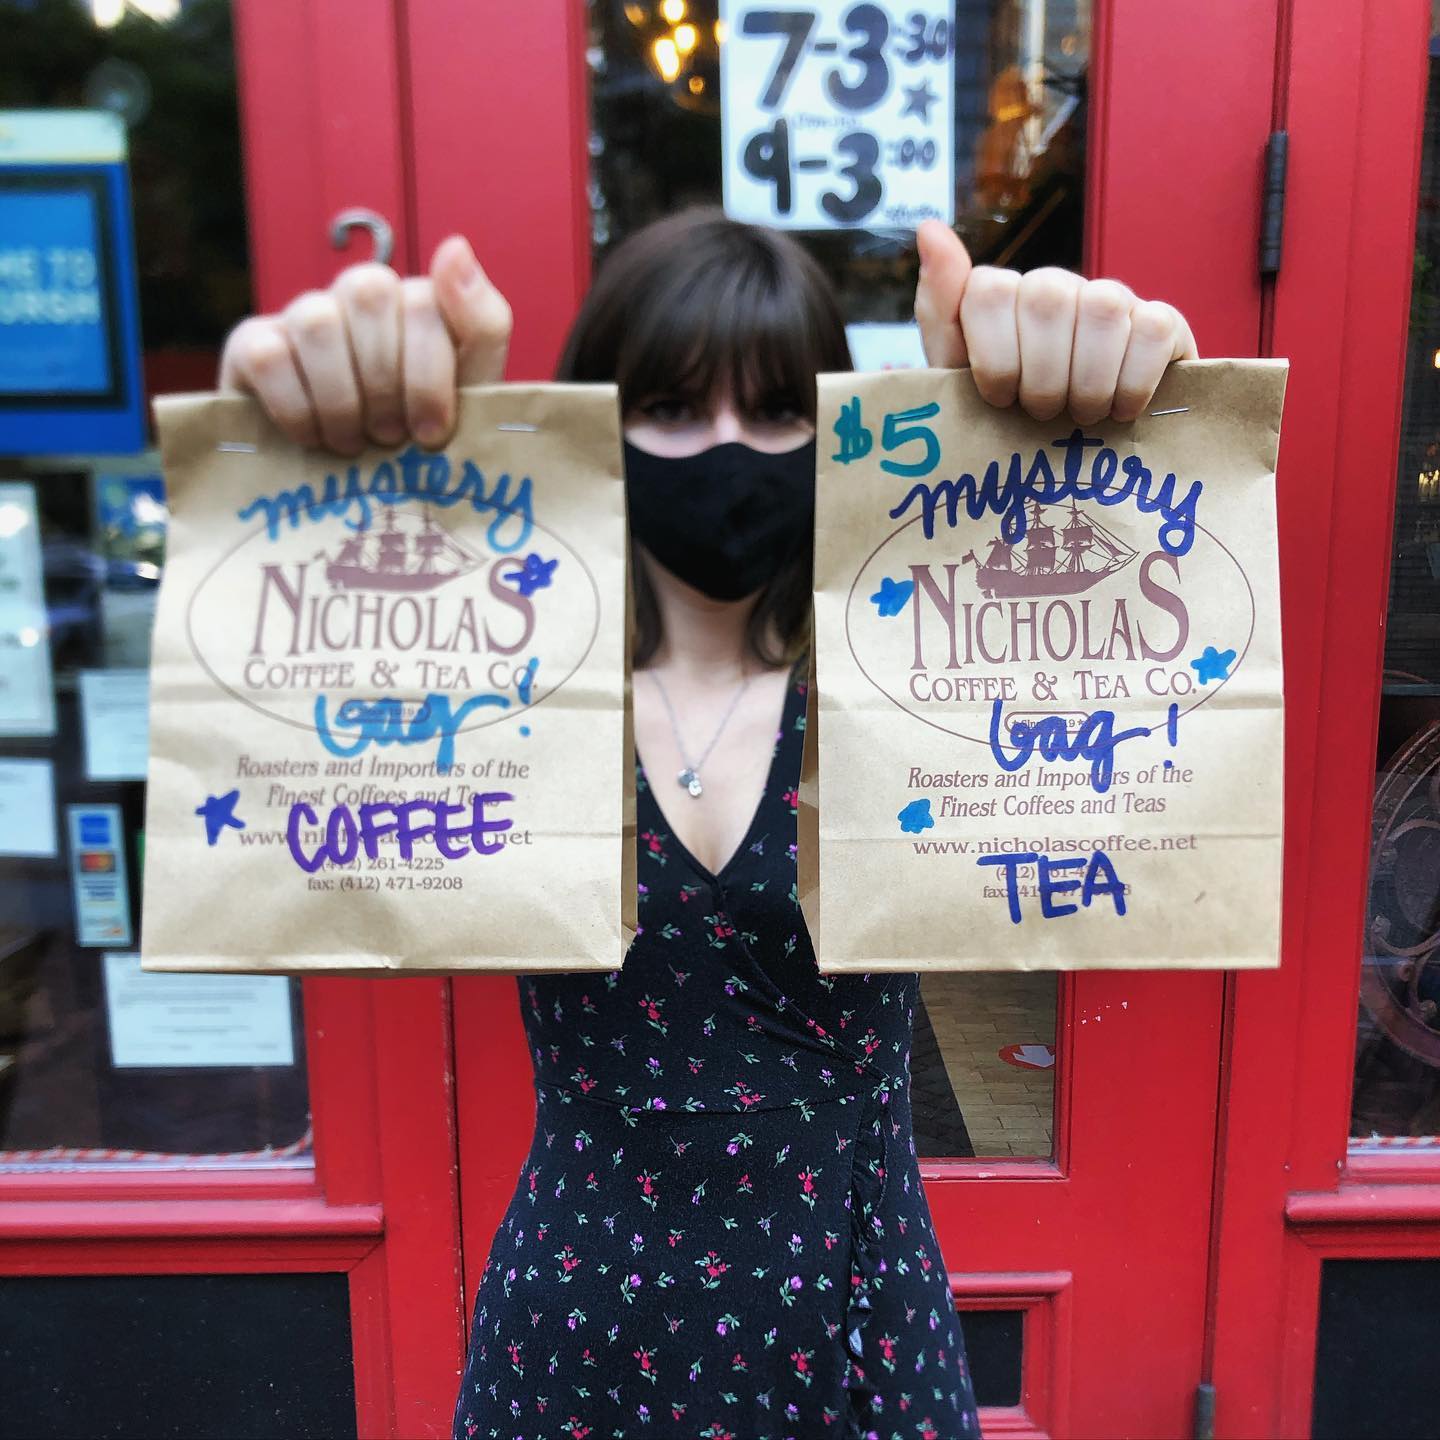 7-3:30
9-3:00
ME TO
mystery
NICHOLAS
COFFEE & TEA CO.
bag!
Roasters and Importers of the
Finest Coffees and Teas
COFFEE
www.nicholascoffee.net
(412) 261-4225
fax: (412) 471-9208
$5
mystery
NICHOLAS
COFFEE & TEA CO.
Since 1919
bag!
Roasters and Importers of the
Finest Coffees and Teas
www.nicholascoffee.net
TEA